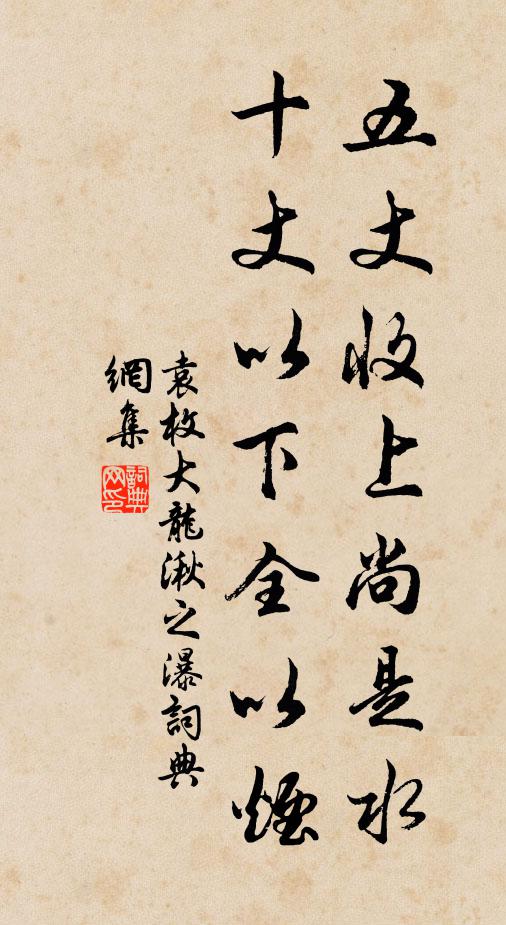 五丈收上尚是水
十丈以下全以煙
袁枚大龍湫之瀑詞典
網集
詞典
网印